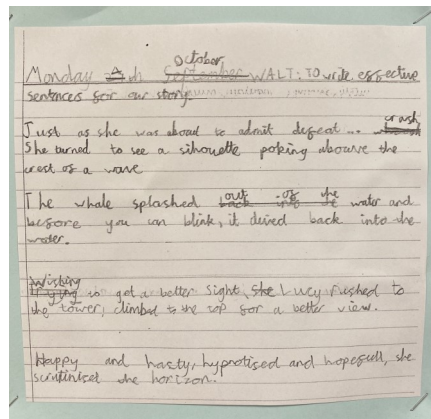 October
Monday 4th September WALT: To write effective
sentences for our story.
Just as she was about to admit defeat... crash
She turned to see a sihouette poking abouve the
crest of a wave
out of the
The whale splashed back into the water and
before you can blink, it dived back into the
water.
Wishing
trying to get a better sight, she Lucy rushed to
the tower, climbed to the top for a better view.
Happy and hasty, hypnotised and hopefull, she
scrutinised the horizon.